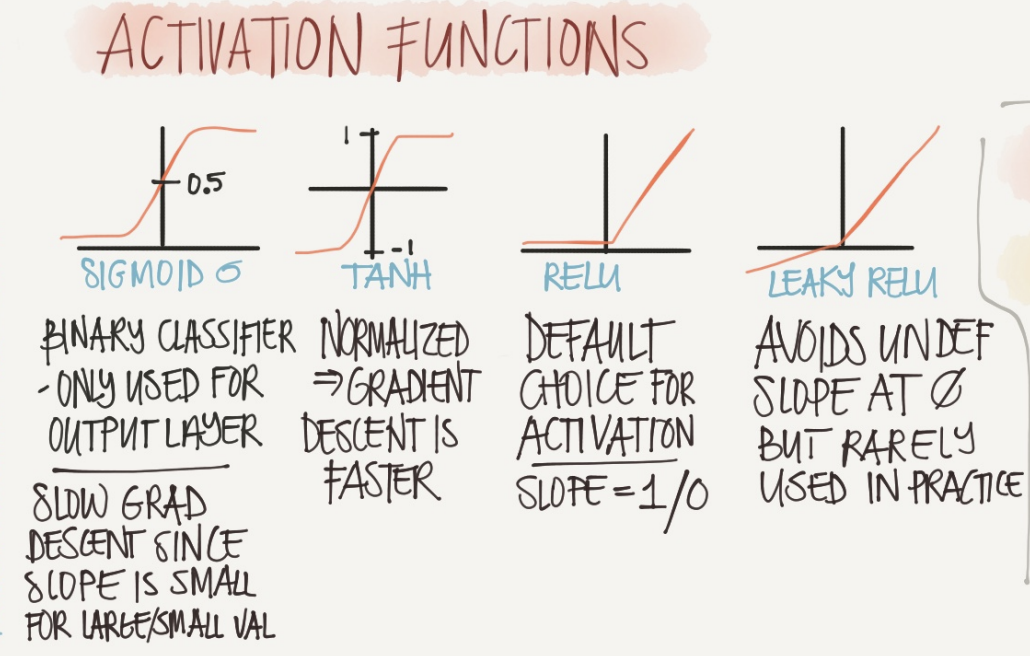 ACTIVATION FUNCTIONS
0.5
SIGMOID σ
BINARY CLASSIFIER
- ONLY USED FOR
OUTPUT LAYER
SLOW GRAD
DESCENT SINCE
SLOPE IS SMALL
FOR LARGE/SMALL VAL
1
-1
TANH
NORMALIZED
⇒ GRADIENT
DESCENT IS
FASTER
RELU
DEFAULT
CHOICE FOR
ACTIVATION
SLOPE = 1/0
LEAKY RELU
AVOIDS UNDEF
SLOPE AT Ø
BUT RARELY
USED IN PRACTICE